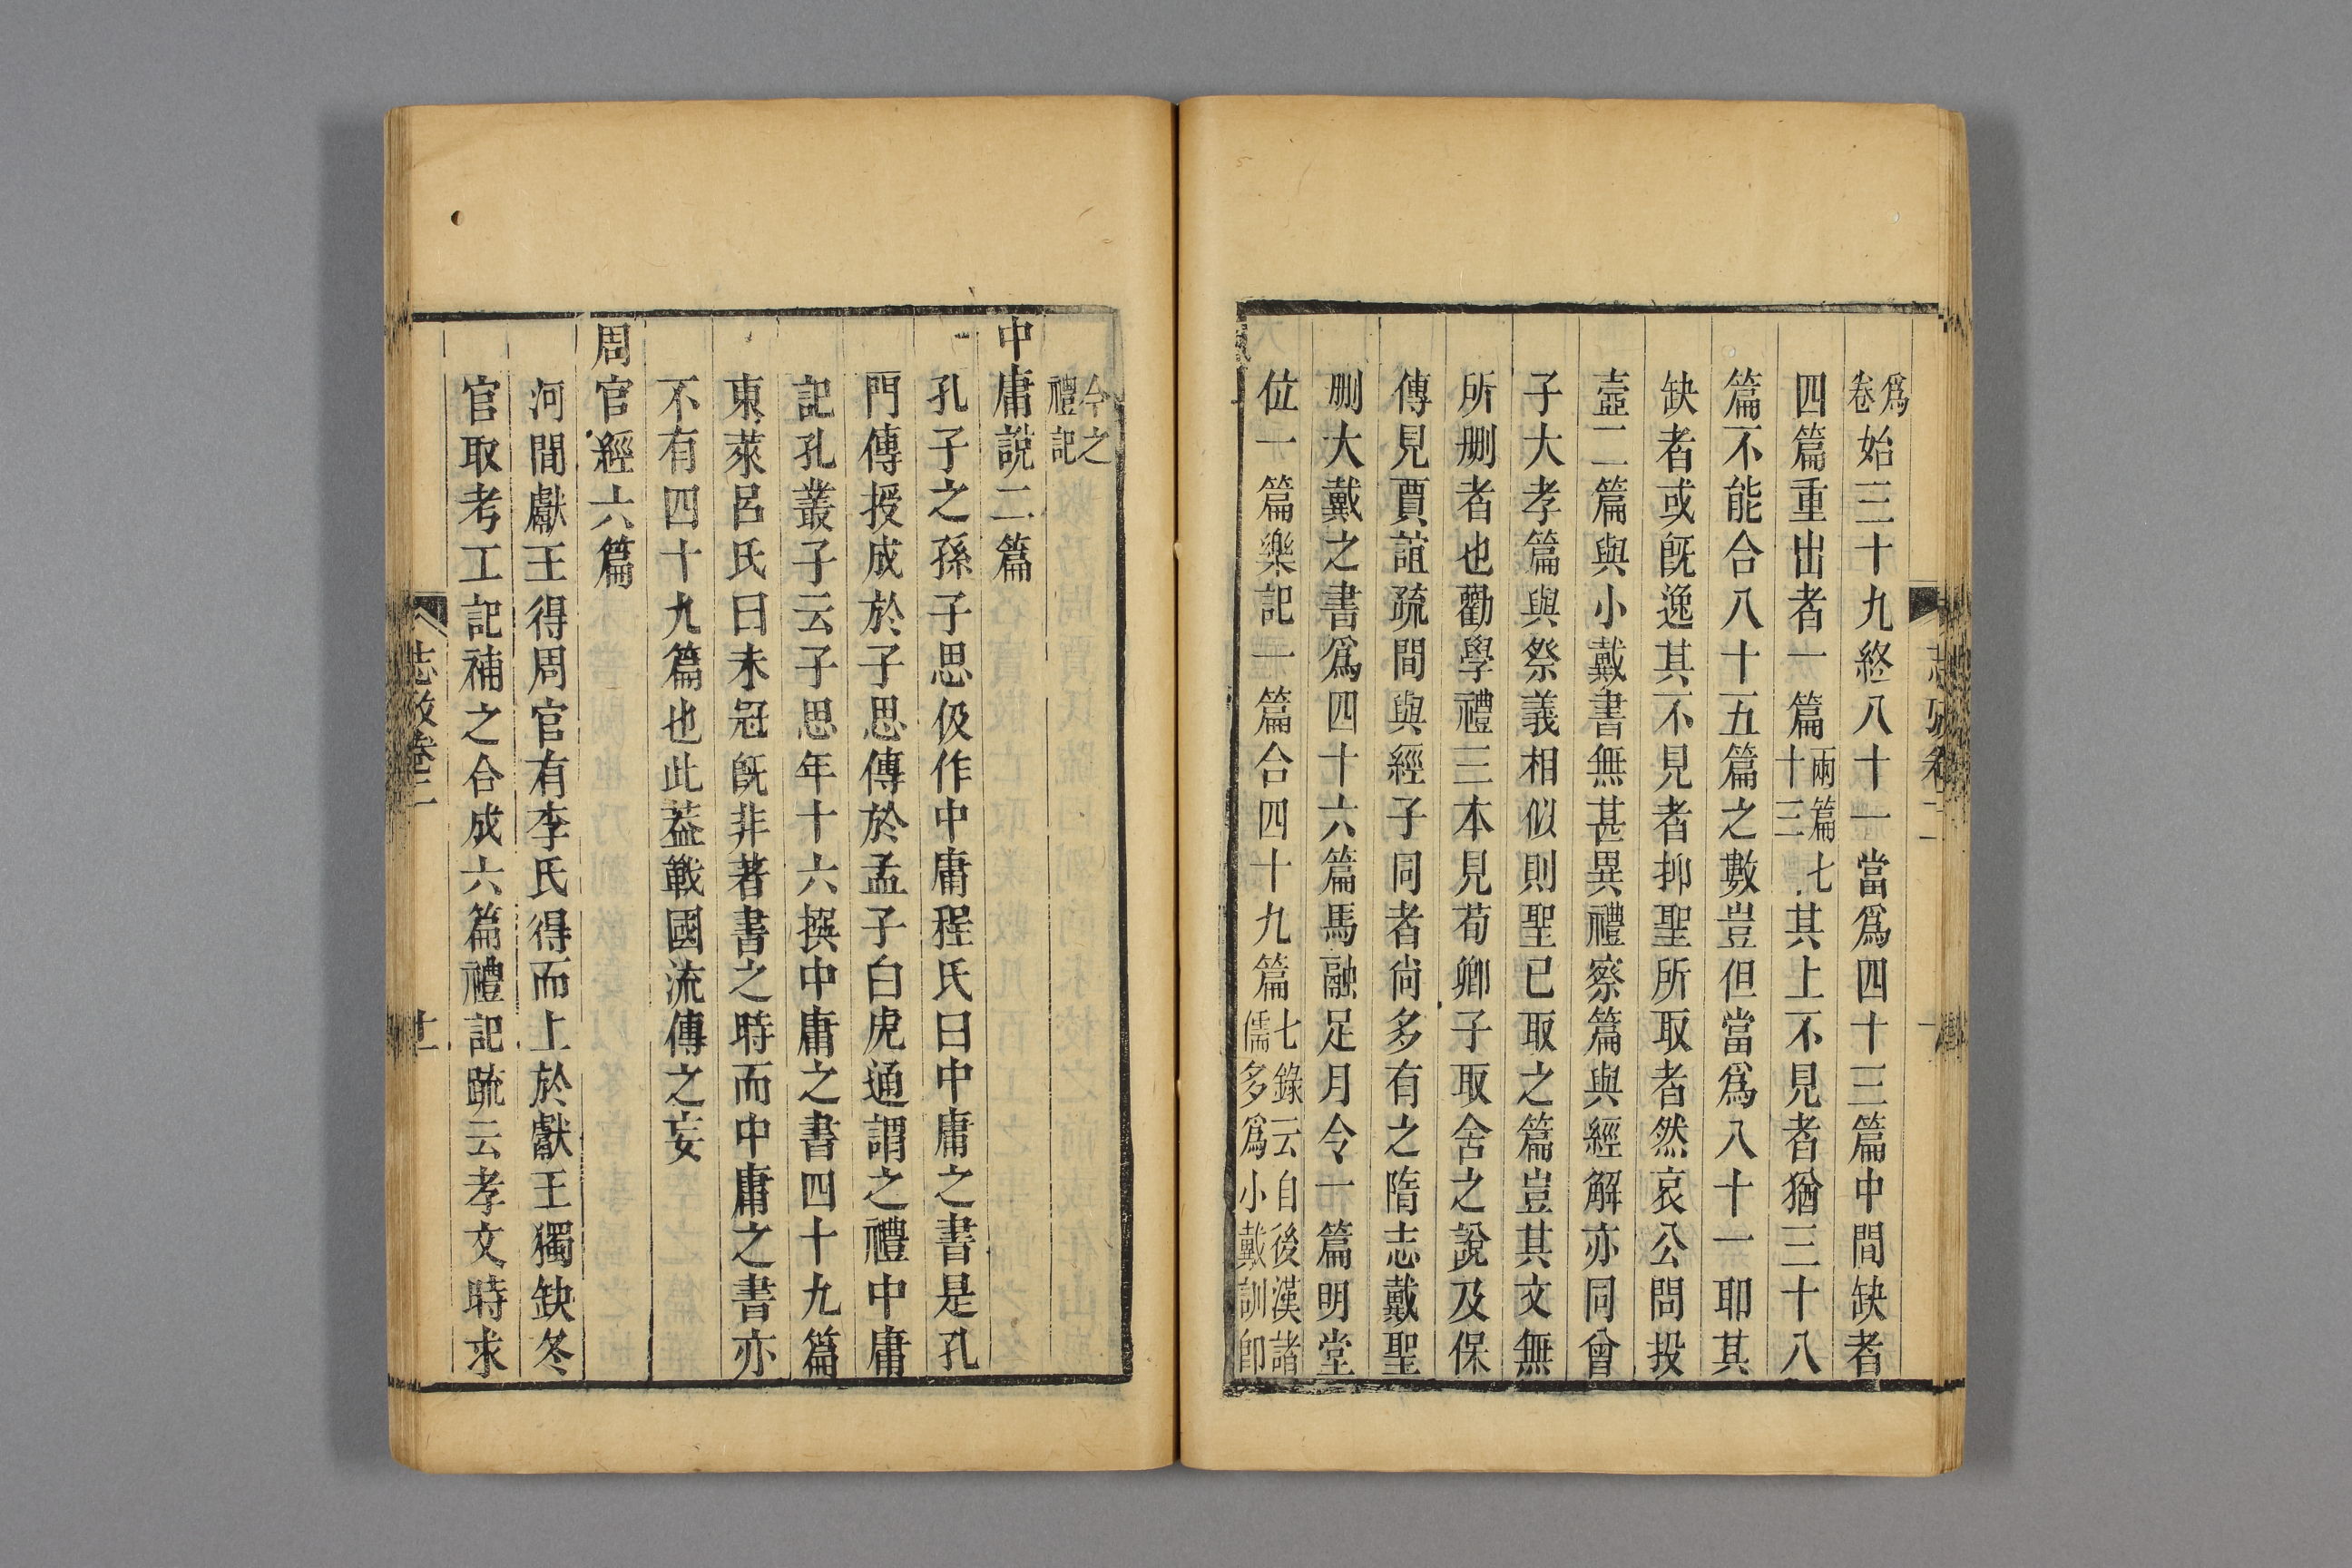 爲卷始三十九終八十一當爲四十三篇中間缺者
四篇重出者一篇兩篇七十三其上不見者猶三十八
篇不能合八十五篇之數豈但當爲八十一耶其
缺者或旣逸其不見者抑聖所取者然哀公問投
壺二篇與小戴書無甚異禮察篇與經解亦同曾
子大孝篇與祭義相似則聖已取之篇豈其文無
所刪者也勸學禮三本見荀卿子取舍之說及保
傳見賈誼疏間與經子同者尙多有之隋志戴聖
刪大戴之書爲四十六篇馬融足月令一篇明堂
位一篇樂記一篇合四十九篇七錄云自後漢諸儒多爲小戴訓卽
今之禮記
中庸說二篇
孔子之孫子思伋作中庸程氏曰中庸之書是孔
門傳授成於子思傳於孟子白虎通謂之禮中庸
記孔叢子云子思年十六撰中庸之書四十九篇
東萊呂氏曰未冠旣非著書之時而中庸之書亦
不有四十九篇也此葢戰國流傳之妄
周官經六篇
河間獻王得周官有李氏得而上於獻王獨缺冬
官取考工記補之合成六篇禮記疏云孝文時求
志攷卷二
十一